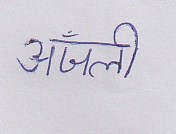 अँजली